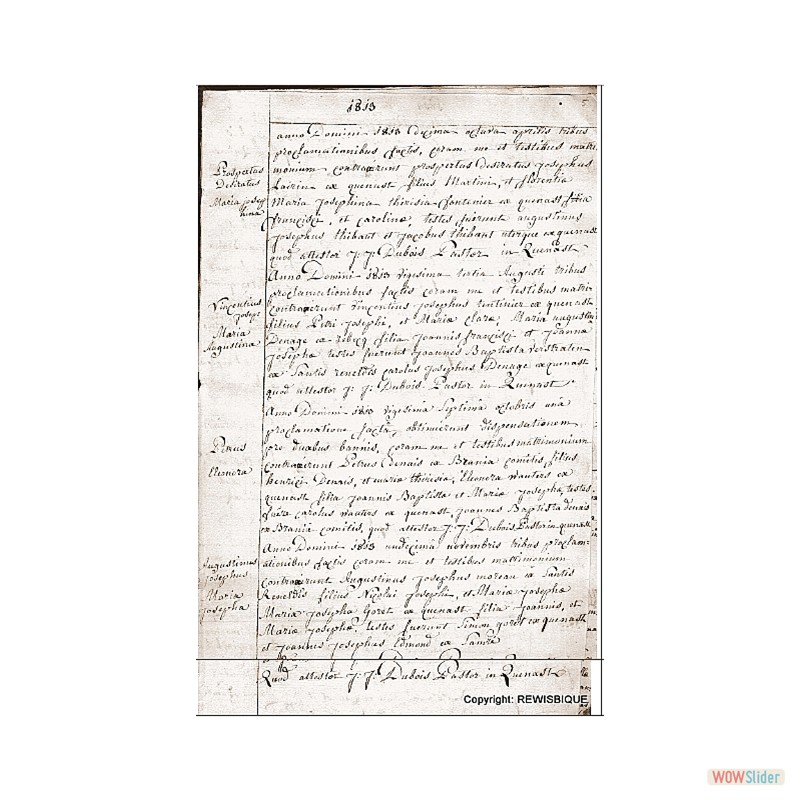 1813
anno Domini 1813 decima octava aprilis tribus
proclamationibus factis, coram me et testibus matri
monium contraxerunt prosperus desiratus josephus
ex quenast filius Martini, et florentia
Maria josephina theresia fontenier ex quenast filia
francisci, et carolinæ, testes fuerunt augustinus
josephus thibaut et jacobus thibaut uterque ex quenast
quod attestor J. J. Dubois Pastor in Quenast
Prosperus
Desiratus
Maria josep
hina
Anno Domini 1813 vigesima tertia Augusti tribus
proclamationibus factis coram me et testibus matri
contraxerunt vincentius josephus ex quenast
filius Petri josephi, et Mariæ claræ, Maria augustina
Denage ex rebecq filia joannis francisci et joannæ
josephæ testes fuerunt joannes Baptista
ex Santis reneldis carolus josephus Denage ex quenast
quod attestor J: J: Dubois Pastor in Quenast
Vincentius
josep
Maria
Augustina
Anno Domini 1813 vigesima Septima octobris unâ
proclamatione factâ, obtinuerunt dispensationem
pro duobus bannis, coram me et testibus matrimonium
contraxerunt Petrus denais ex Brania comitis, filius
henrici Denais, et maria theresia, Eleonora wauters ex
quenast filia joannis Baptista et Mariæ josepha, testes
fuêre carolus wauters ex quenast, joannes Baptista denais
ex Brania comitis, quod attestor J. J. Dubois Pastor in quenast
Petrus
Eleonora
Anno Domini 1813 undecima novembris tribus proclam-
ationibus factis coram me et testibus matrimonium
contraxerunt Augustinus josephus moreau ex Santis
Reneldis filius Nicolai josephi, et Mariæ josepha
Maria josepha Goret ex quenast filia joannis, et
Mariæ josephæ, testes fuerunt Simon goret ex quenast
et joannes josephus Edmond ex Santis
Quod attestor J. J. Dubois Pastor in Quenast
Augustinus
josephus
Maria
josepha
Copyright: REWISBIQUE
WOWSlider